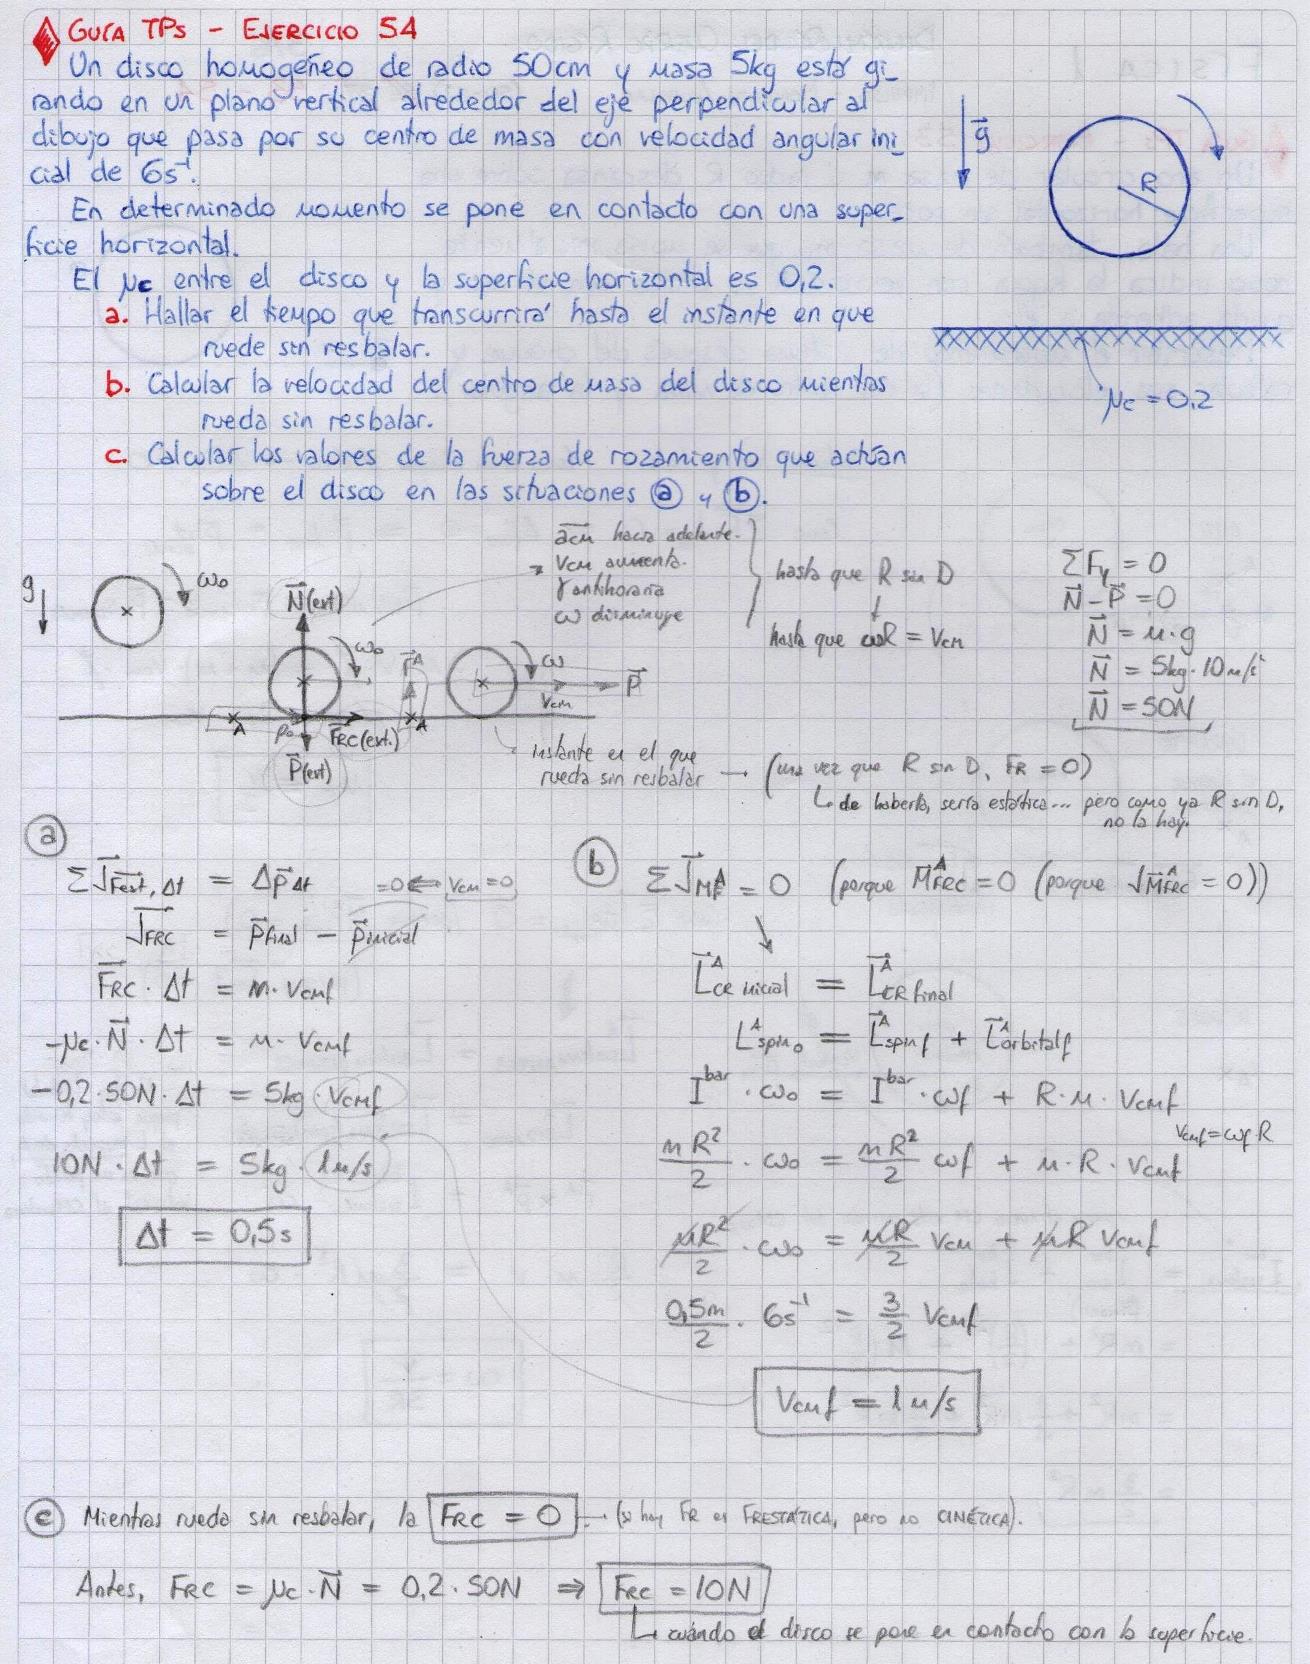 GUÍA TPs - EJERCICIO 54
Un disco homogéneo de radio 50cm y masa 5kg está gi_
rando en un plano vertical alrededor del eje perpendicular al
dibujo que pasa por su centro de masa con velocidad angular ini_
cial de 6s⁻¹.
En determinado momento se pone en contacto con una super_
ficie horizontal.
El μc entre el disco y la superficie horizontal es 0,2.
a. Hallar el tiempo que transcurrirá hasta el instante en que
ruede sin resbalar.
b. Calcular la velocidad del centro de masa del disco mientras
rueda sin resbalar.
c. Calcular los valores de la fuerza de rozamiento que actúan
sobre el disco en las situaciones ⓐ y ⓑ.
g
R
μc = 0,2
acm hacia adelante.
Vcm aumenta.
γ antihoraria
ω disminuye
hasta que R sin D
hasta que ωR = Vcm
ΣFy = 0
N - P = 0
N = m·g
N = 5kg·10m/s²
N = 50N
g
ω₀
N(ext)
ω₀
r A
ω
Vcm
P
A
FRC(ext.)
A
P(ext)
instante en el que
rueda sin resbalar → (una vez que R sin D, FR = 0)
↳ de haberla, sería estática... pero como ya R sin D,
no la hay.
ⓐ
ΣJFext,Δt = ΔpΔt
=0 ⇐ Vcm=0
JFRC = pfinal - pinicial
FRC · Δt = m·Vcmf
-μc·N·Δt = m·Vcmf
-0,2·50N·Δt = 5kg·Vcmf
10N · Δt = 5kg·1m/s
Δt = 0,5s
ⓑ ΣJMF^A = 0 (porque MFRC^A = 0 (porque JMFRC^A = 0))
L^A CR inicial = L^A CR final
L^A spin₀ = L^A spinf + L^A orbitalf
I^bar · ω₀ = I^bar · ωf + R·m·Vcmf
Vcmf = ωf·R
mR²/2 · ω₀ = mR²/2 ωf + m·R·Vcmf
mR²/2 · ω₀ = mR/2 Vcm + mR Vcmf
0,5m/2 · 6s⁻¹ = 3/2 Vcmf
Vcmf = 1m/s
ⓒ Mientras rueda sin resbalar, la FRC = 0 → (si hay FR es FRESTÁTICA, pero no CINÉTICA).
Antes, FRC = μc·N = 0,2·50N ⇒ FRC = 10N
↳ cuándo el disco se pone en contacto con la superficie.